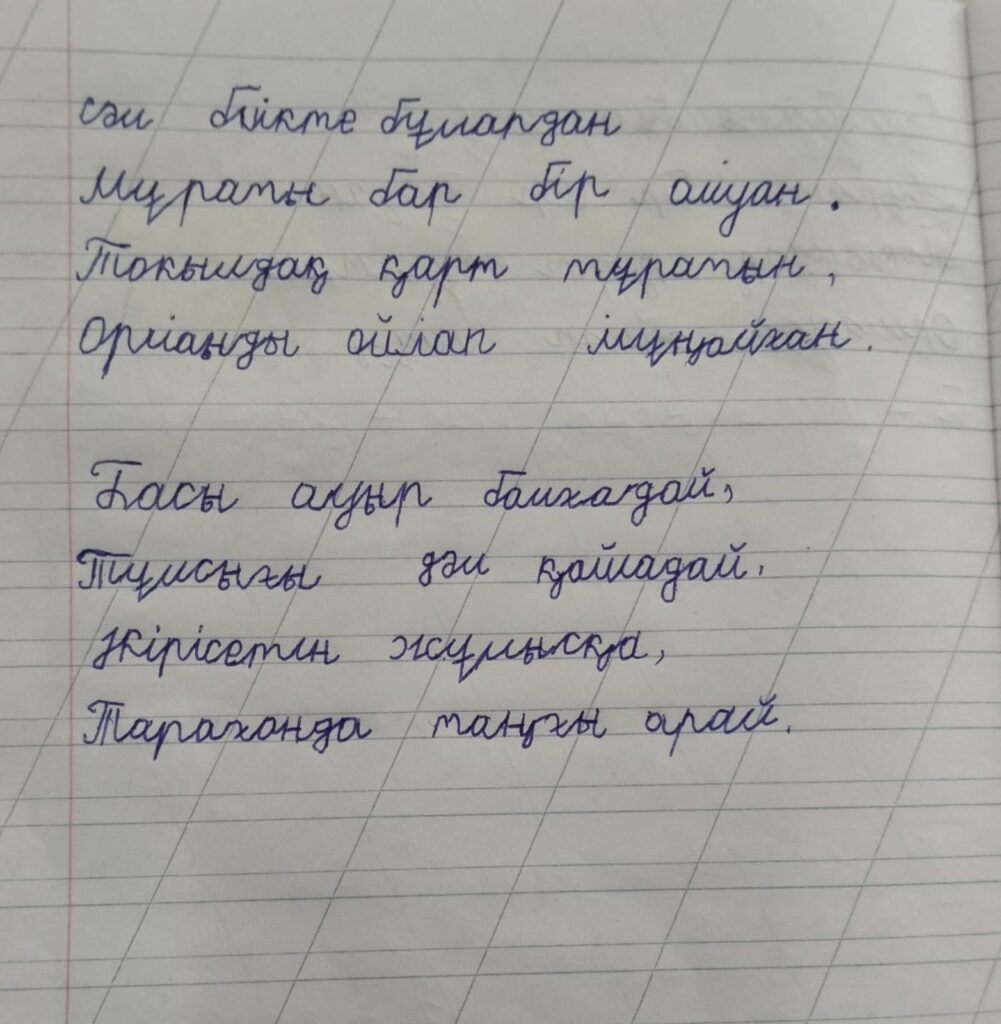 сәл биікте бұлардан
Мұраты бар бір ашуан.
Тоқылдақ қарт тұратын,
Орманды ойлап мұңайхан.
Басы ауыр балхадай,
Тұмсыхы дәл қашадай.
Жірісетін жұмысқа,
Тарахонда таңхы арай.